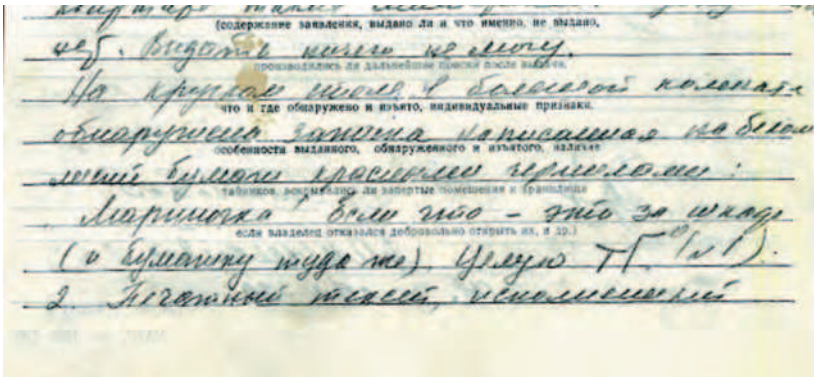 квартире также
(содержание заявления, выдано ли и что именно, не выдано,
нет. Выдать ничего не могу.
производились ли дальнейшие поиски после выдачи,
На круглом столе в большой комнате
что и где обнаружено и изъято, индивидуальные признаки,
обнаружена записка написанная на белом
особенности выданного, обнаруженного и изъятого, наличие
листе бумаги красными чернилами:
тайников, вскрывались ли запертые помещения и хранилища
„Мариночка! Если что – это за шкаф
если владелец отказался добровольно открыть их, и др.)
(и бумажку туда же). Целую ТГ" (№1).
2. Печатный текст, исполненный